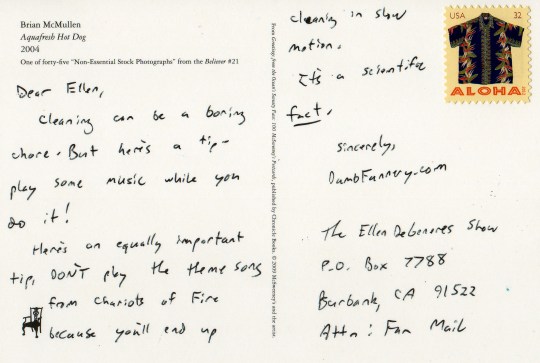 Brian McMullen
Aquafresh Hot Dog
2004
One of forty-five "Non-Essential Stock Photographs" from the Believer #21
Dear Ellen,
Cleaning can be a boring
chore. But here's a tip-
play some music while you
do it!
Here's an equally important
tip, DON'T play the theme song
from Chariots of Fire
because you'll end up
From Greetings from the Ocean's Sweaty Face: 100 McSweeney's Postcards, published by Chronicle Books. © 2009 McSweeney's and the artist.
cleaning in slow
motion.
It's a scientific
fact.
sincerely,
DumbFunnery.com
USA 32
ALOHA
The Ellen DeGeneres Show
P.O. Box 7788
Burbank, CA 91522
Attn: Fan Mail